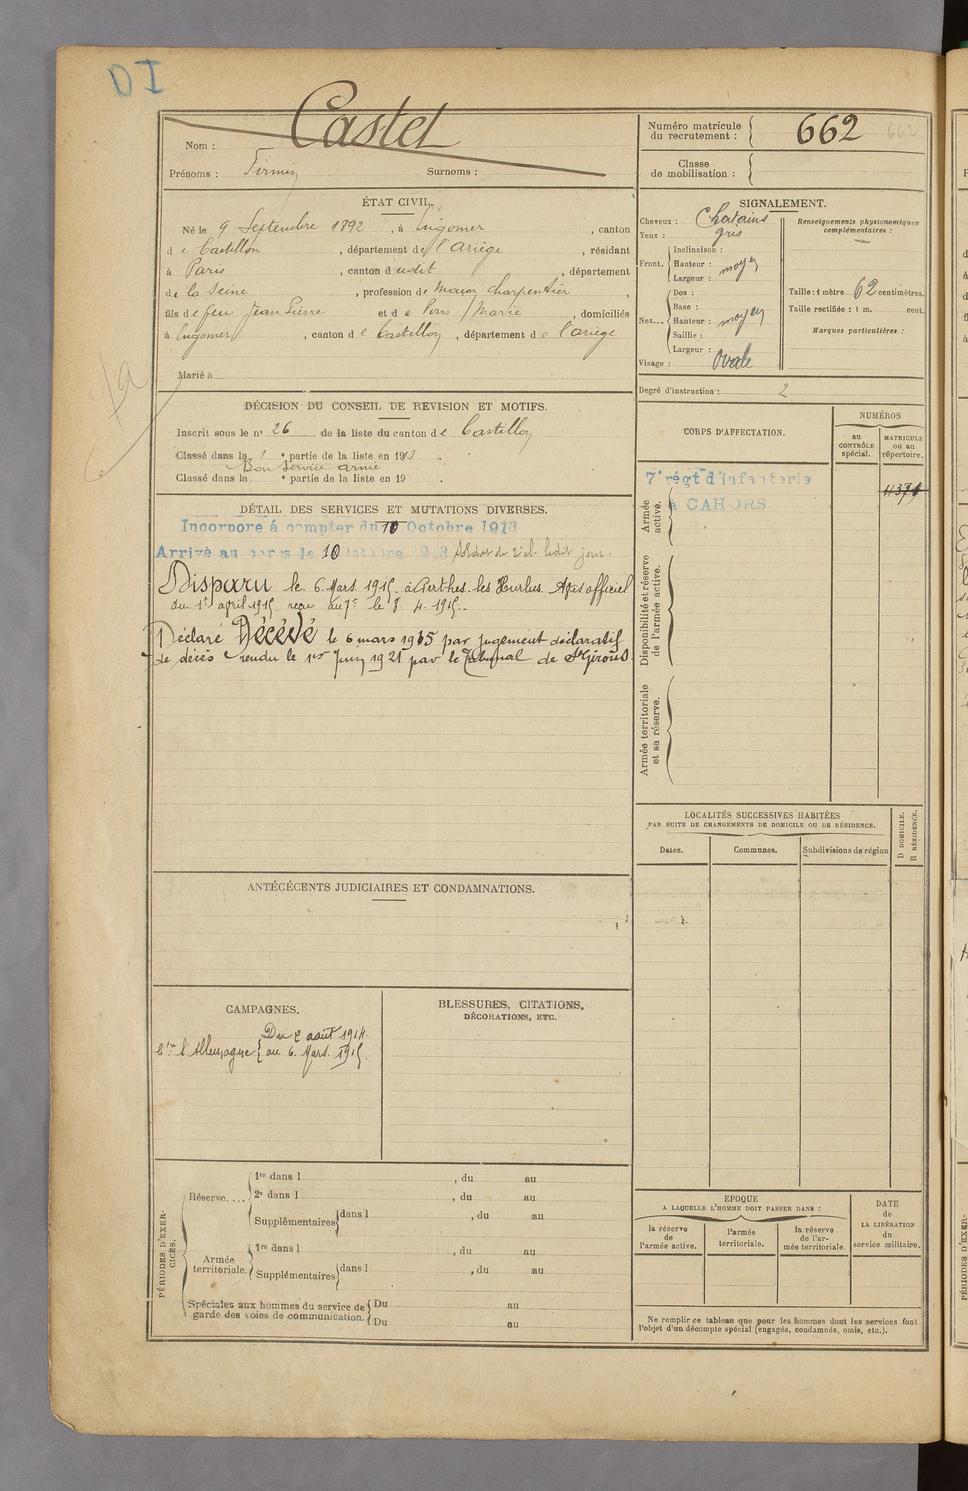 DI
Nom : Castel
Prénoms : Firmin Surnoms :
Numéro matricule
du recrutement : 662
Classe
de mobilisation :
ÉTAT CIVIL.
Né le 9 Septembre 1892, à Engomer, canton
de Castillon, département de l'Ariège, résidant
à Paris, canton dudit, département
de la Seine, profession de Maçon charpentier,
fils de feu Jean Pierre et de Pons Marie, domiciliés
à Engomer, canton de Castillon, département de l'ariège
Marié à
SIGNALEMENT.
Cheveux : Chatains
Yeux : gris
Front. Inclinaison :
Hauteur : moyen
Largeur :
Nez... Dos :
Base :
Hauteur : moyen
Saillie :
Largeur :
Visage : Ovale
Renseignements physionomiques
complémentaires :
Taille : 1 mètre 62 centimètres.
Taille rectifiée : 1 m. cent.
Marques particulières :
Degré d'instruction : 2
DÉCISION DU CONSEIL DE REVISION ET MOTIFS.
Inscrit sous le n° 26 de la liste du canton de Castillon
Classé dans la 1e partie de la liste en 1913.
Bon Service armé
Classé dans la e partie de la liste en 19 .
DÉTAIL DES SERVICES ET MUTATIONS DIVERSES.
Incorporé à compter du 10 Octobre 1913
Arrivé au corps le 10 octobre 1913 soldat de 2e cl. ledit jour.
Disparu le 6 Mars 1915 à Perthes-les-Hurlus. Avis officiel
du 1er april 1915 reçu au 7e le 8. 4. 1915.
Déclaré Décédé le 6 mars 1915 par jugement déclaratif
de décès rendu le 1er Juin 1921 par le Tribunal de St Girons
CORPS D'AFFECTATION.
NUMÉROS
au
CONTRÔLE
spécial.
MATRICULE
ou au
répertoire.
Armée
active.
7e régt d'infanterie
à CAHORS
4371
Disponibilité et réserve
de l'armée active.
Armée territoriale
et sa réserve.
LOCALITÉS SUCCESSIVES HABITÉES
PAR SUITE DE CHANGEMENTS DE DOMICILE OU DE RÉSIDENCE.
Dates.
Communes.
Subdivisions de région
D DOMICILE.
R RÉSIDENCE.
ANTÉCÉCENTS JUDICIAIRES ET CONDAMNATIONS.
CAMPAGNES.
Ctre l'Allemagne { Du 2 août 1914.
au 6 Mars 1915.
BLESSURES, CITATIONS,
DÉCORATIONS, ETC.
PÉRIODES D'EXER-
CICES.
Réserve.... 1re dans l , du au
2e dans l , du au
Supplémentaires dans l , du au
Armée
territoriale. 1re dans l , du au
Supplémentaires dans l , du au
Spéciales aux hommes du service de
garde des voies de communication. Du au
Du au
EPOQUE
A LAQUELLE L'HOMME DOIT PASSER DANS :
la réserve
de
l'armée active.
l'armée
territoriale.
la réserve
de l'ar-
mée territoriale.
DATE
de
LA LIBÉRATION
du
service militaire.
Ne remplir ce tableau que pour les hommes dont les services font
l'objet d'un décompte spécial (engagés, condamnés, omis, etc.).